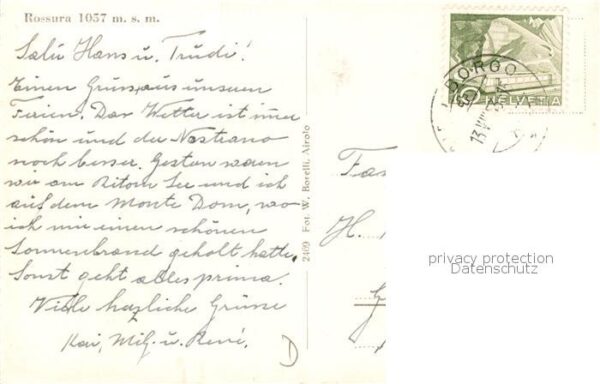 Rossura 1057 m. s. m.
Salü Hans u. Trudi!
Einen Gruss aus unseren
Ferien. Das Wetter ist imer
schön und der Nostrano
noch besser. Gestern waren
wir am Ritom See und ich
auf dem Monte Dom, wo
ich mir einen schönen
Sonnenbrand geholt hatte.
Sonst geht alles prima.
Viele herzliche Grüsse
Kai, u. René.
D
2499 Fot. W. Borelli, Airolo
BORGO
HELVETIA
Fa
H.
privacy protection
Datenschutz